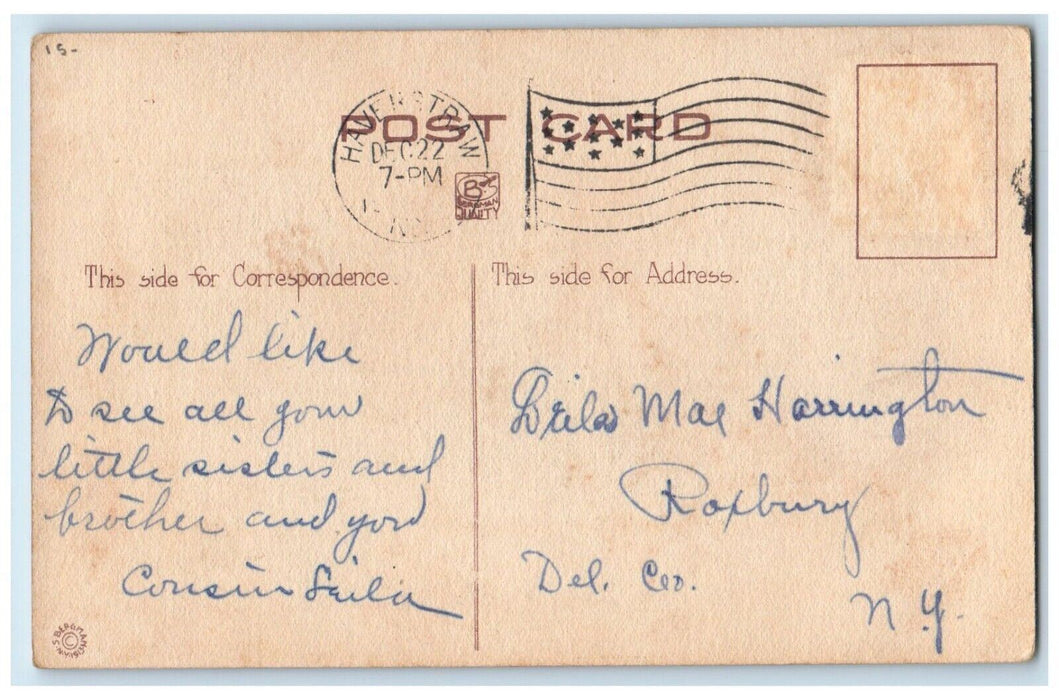 15-
POST CARD
HAVERSTRAW
DEC 22
7-PM
N.Y.
B
BERGMAN
QUALITY
This side for Correspondence.
This side for Address.
Would like
to see all your
little sisters and
brother and you
Cousin Leila
Leila Mae Harrington
Roxbury
Del. Co.
N.Y.
© S. BERGMAN N.Y.